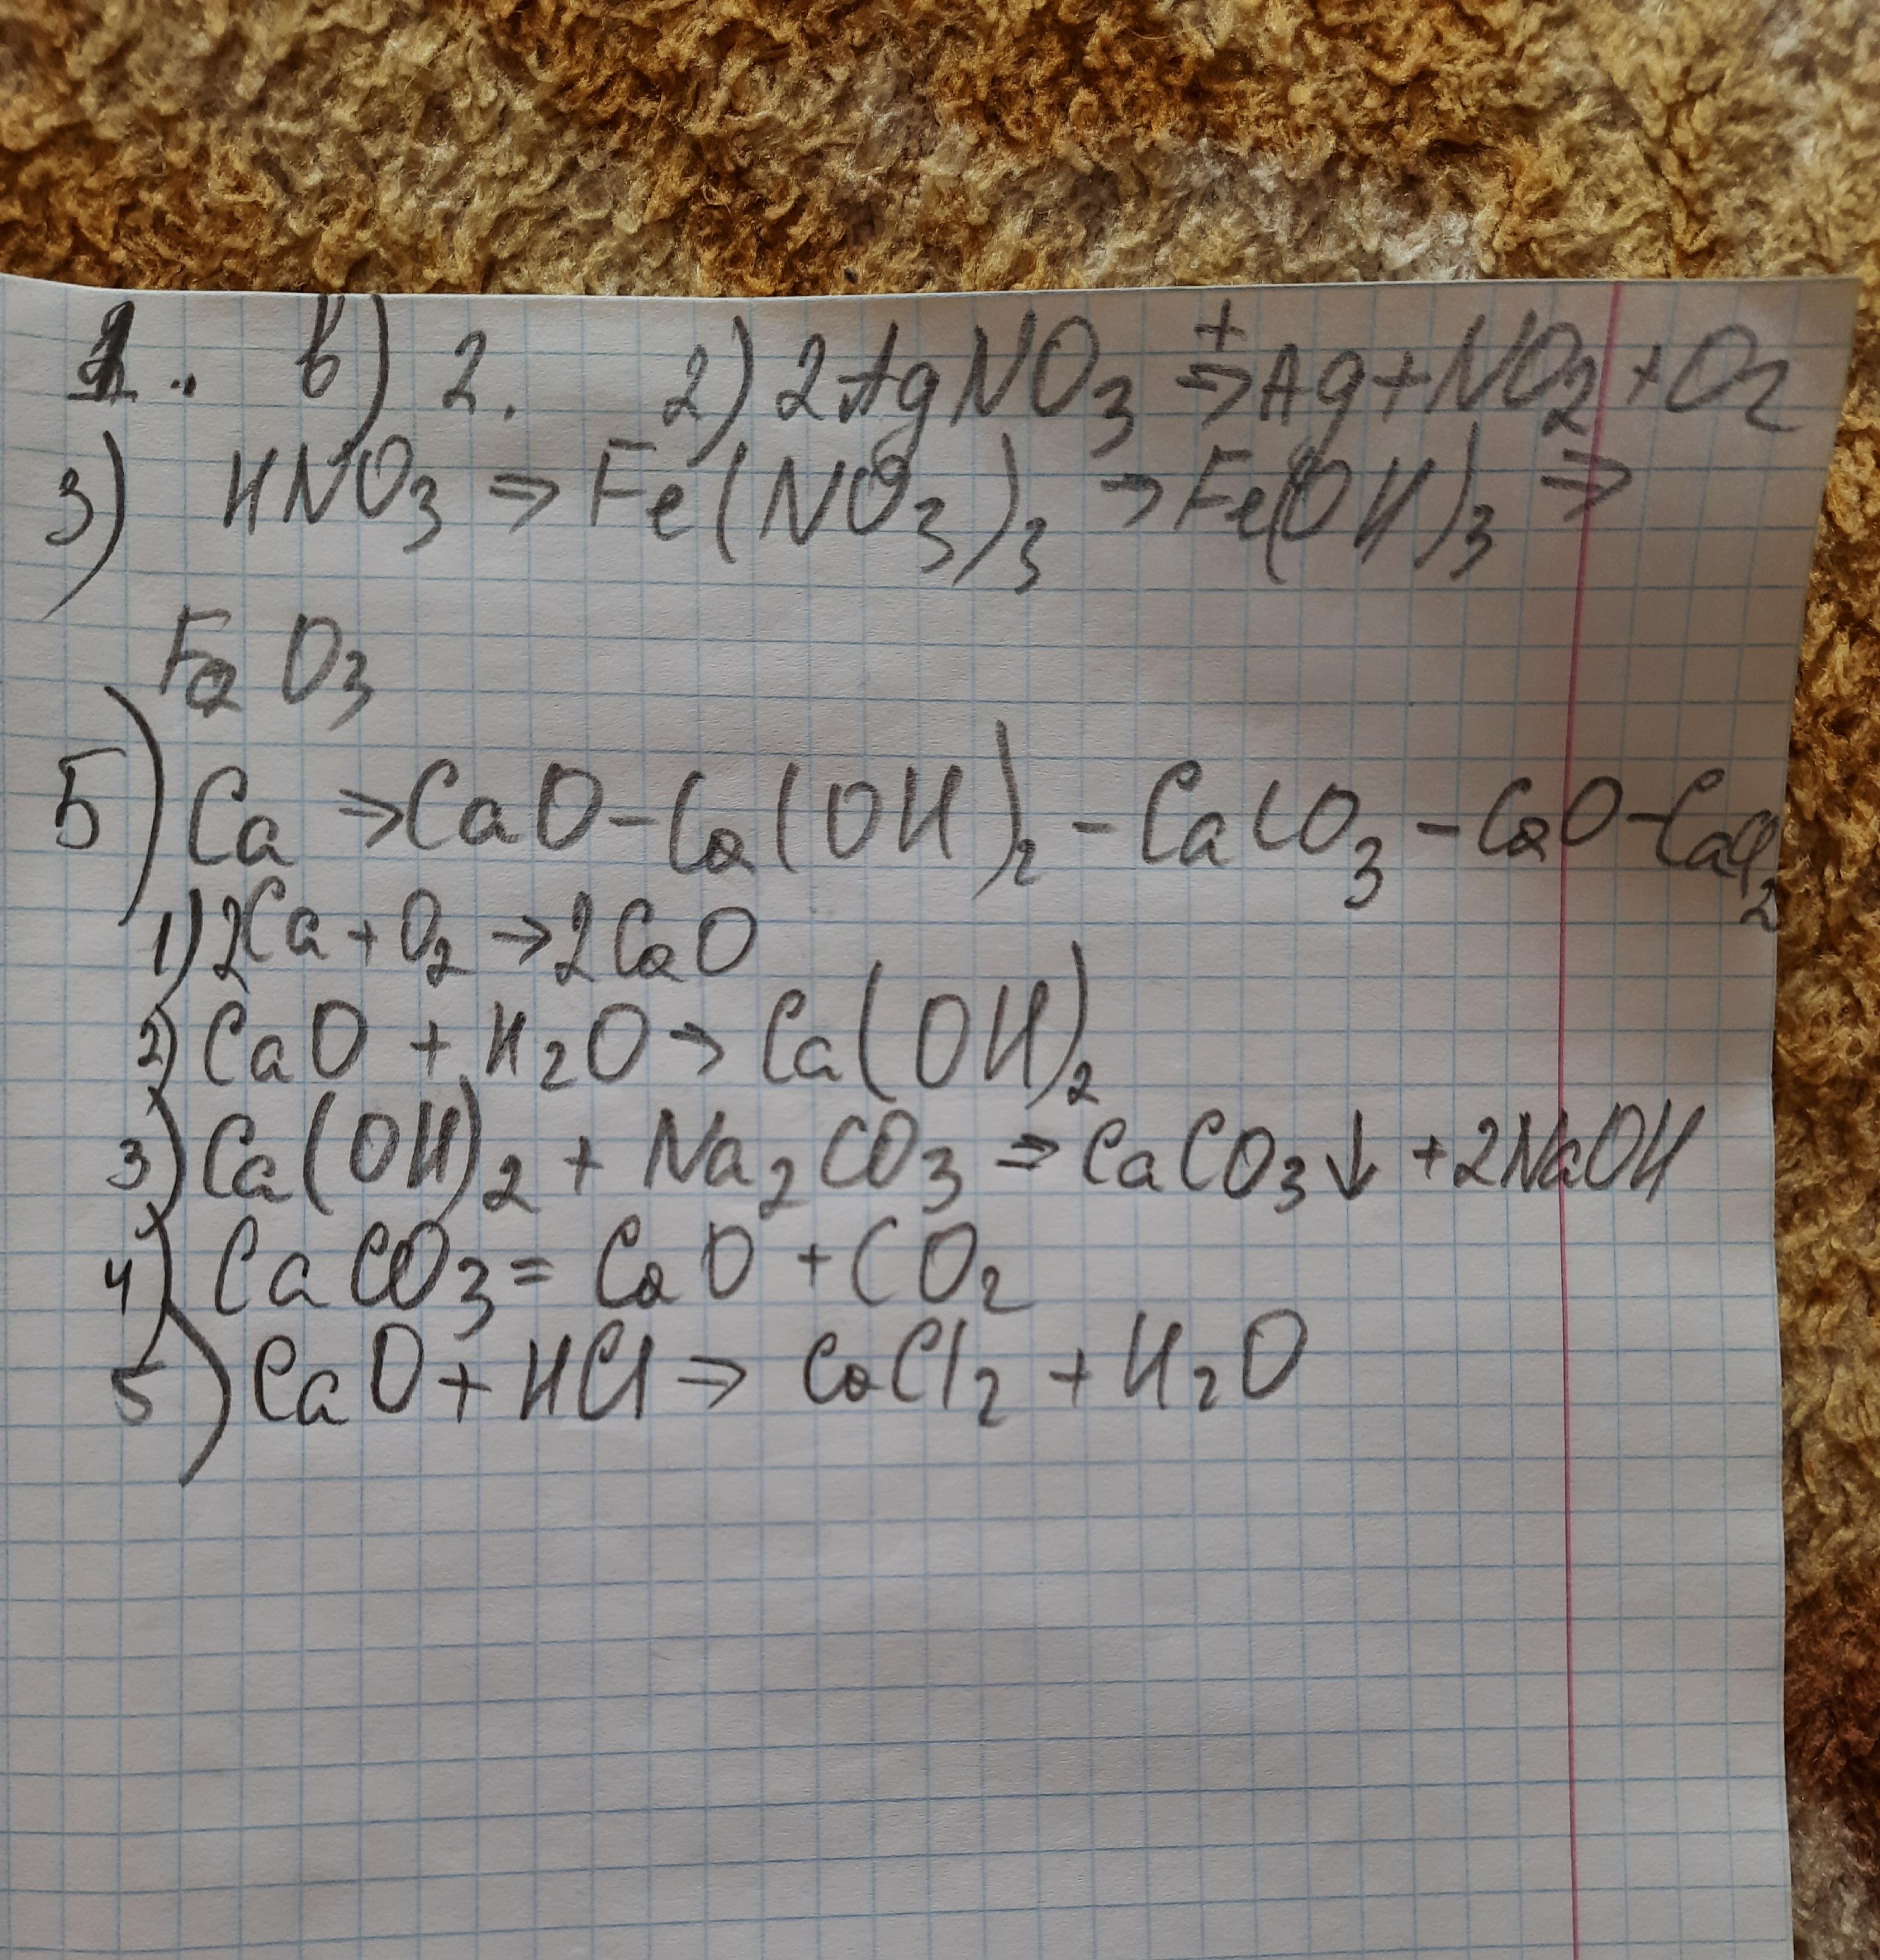 1. в) 2. 2) 2AgNO3 t⇒ Ag + NO2 + O2
3) HNO3 ⇒ Fe(NO3)3 → Fe(OH)3 ⇒
Fe2O3
5) Ca ⇒ CaO - Ca(OH)2 - CaCO3 - CaO - CaCl2
1) 2Ca + O2 → 2CaO
2) CaO + H2O → Ca(OH)2
3) Ca(OH)2 + Na2CO3 ⇒ CaCO3↓ + 2NaOH
4) CaCO3 = CaO + CO2
5) CaO + HCl ⇒ CaCl2 + H2O